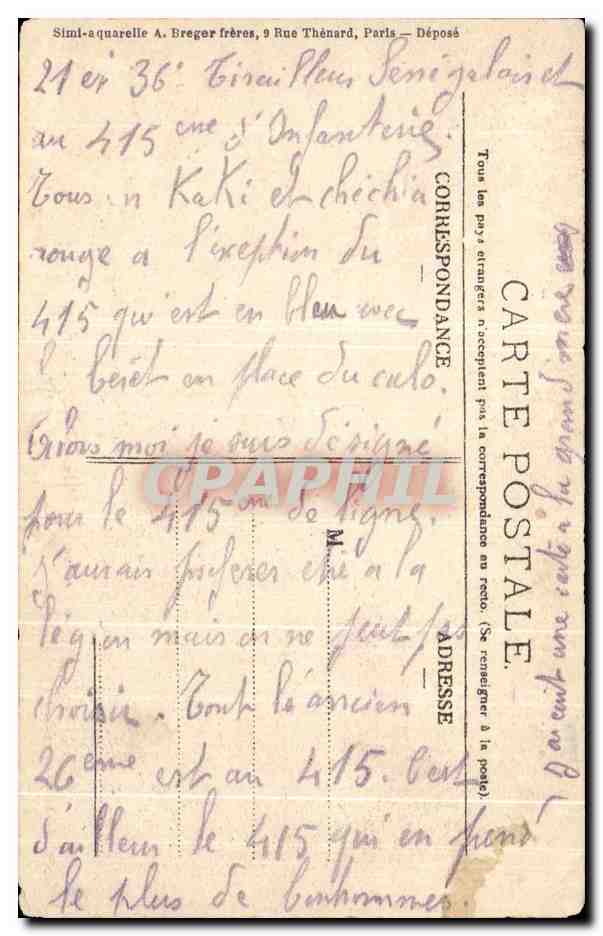 Simi-aquarelle A. Breger frères, 9 Rue Thénard, Paris — Déposé
21 et 36e Tirailleur Sénégalais et
au 415 eme d'Infanterie.
Tous en KaKi et chéchia
rouge a l'exeption du
415 qui est en bleu avec
l beret en place du calo.
Alors moi je suis désigné
pour le 415 em de ligne.
J'aurais préferer etre a la
légion mais on ne peut pas
choisir. Tout l'ancien
26eme est au 415. C'est
d'ailleur le 415 qui en prend
le plus de bonhommes.
CORRESPONDANCE
M
ADRESSE
Tous les pays étrangers n'acceptent pas la correspondance au recto. (Se renseigner à la poste).
CARTE POSTALE.
J'ai ecrit une carte a la grand mere
CPAPHIL